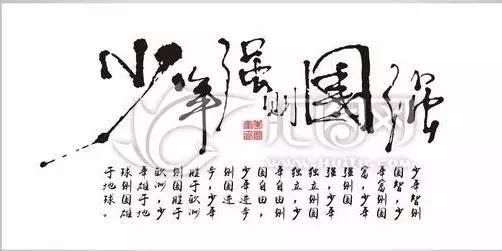 少年强则国强
少年智则
国智,少
年富则国
富,少年
强则国
强,少年
独立则国
独立,少
年自由则
国自由,
少年进步
则国进
步,少年
胜于欧洲,
则国胜于
欧洲,少
年雄于地
球则国雄
于地球。
汇图网